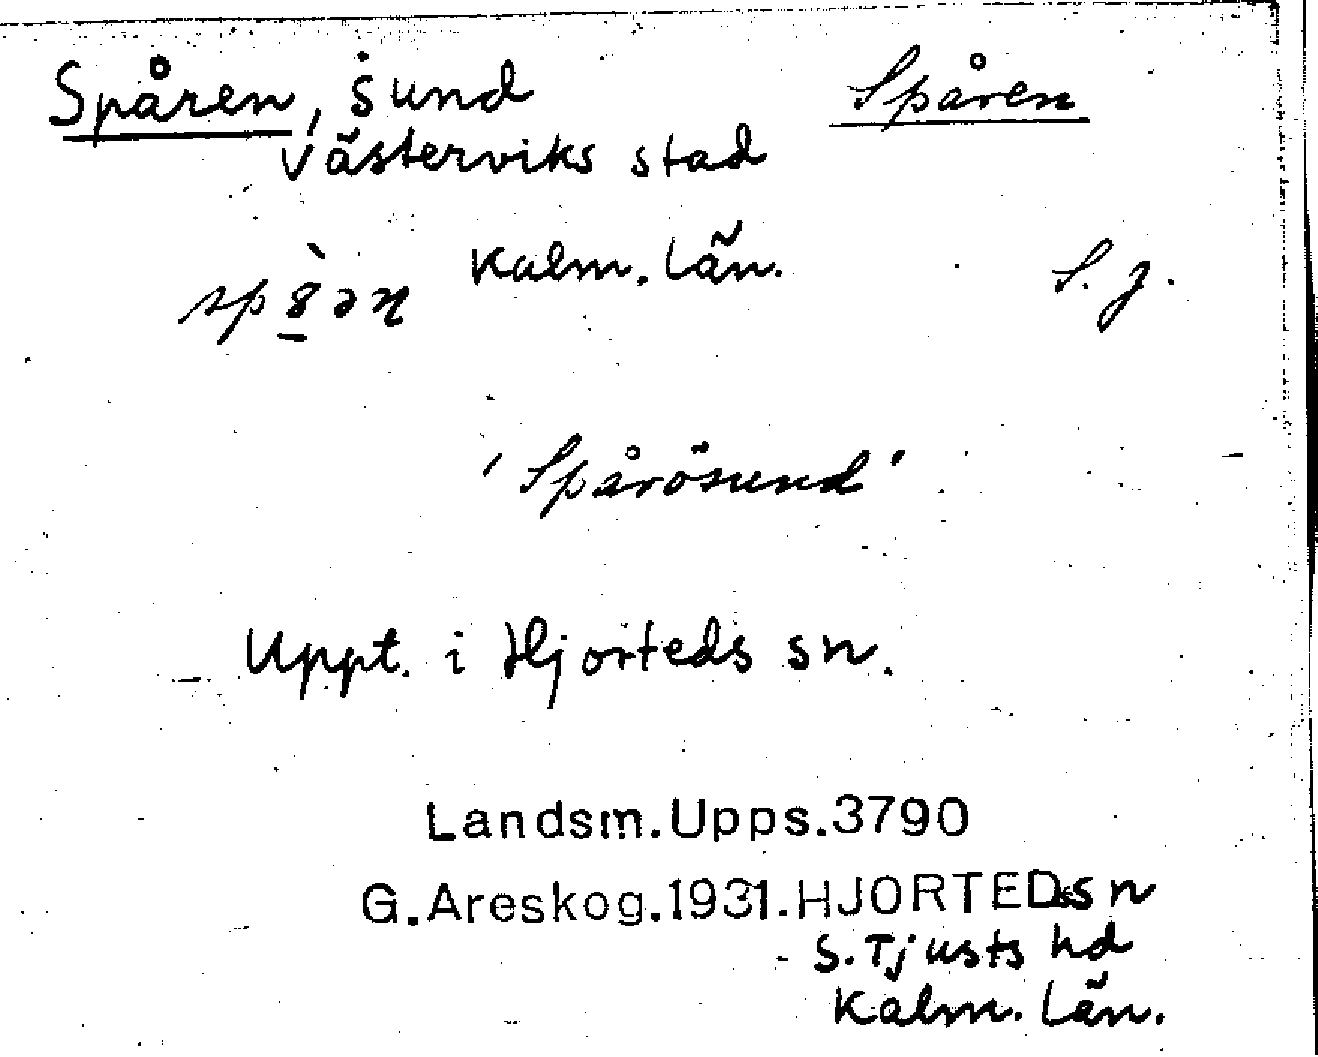 Spåren, sund Spåren
Västerviks stad
Kalm. län. S. J.
'Spårösund'
Uppt. i Hjorteds sn.
Landsm.Upps.3790
G.Areskog.1931.HJORTEDs sn
S. Tjusts hd
Kalm. län.